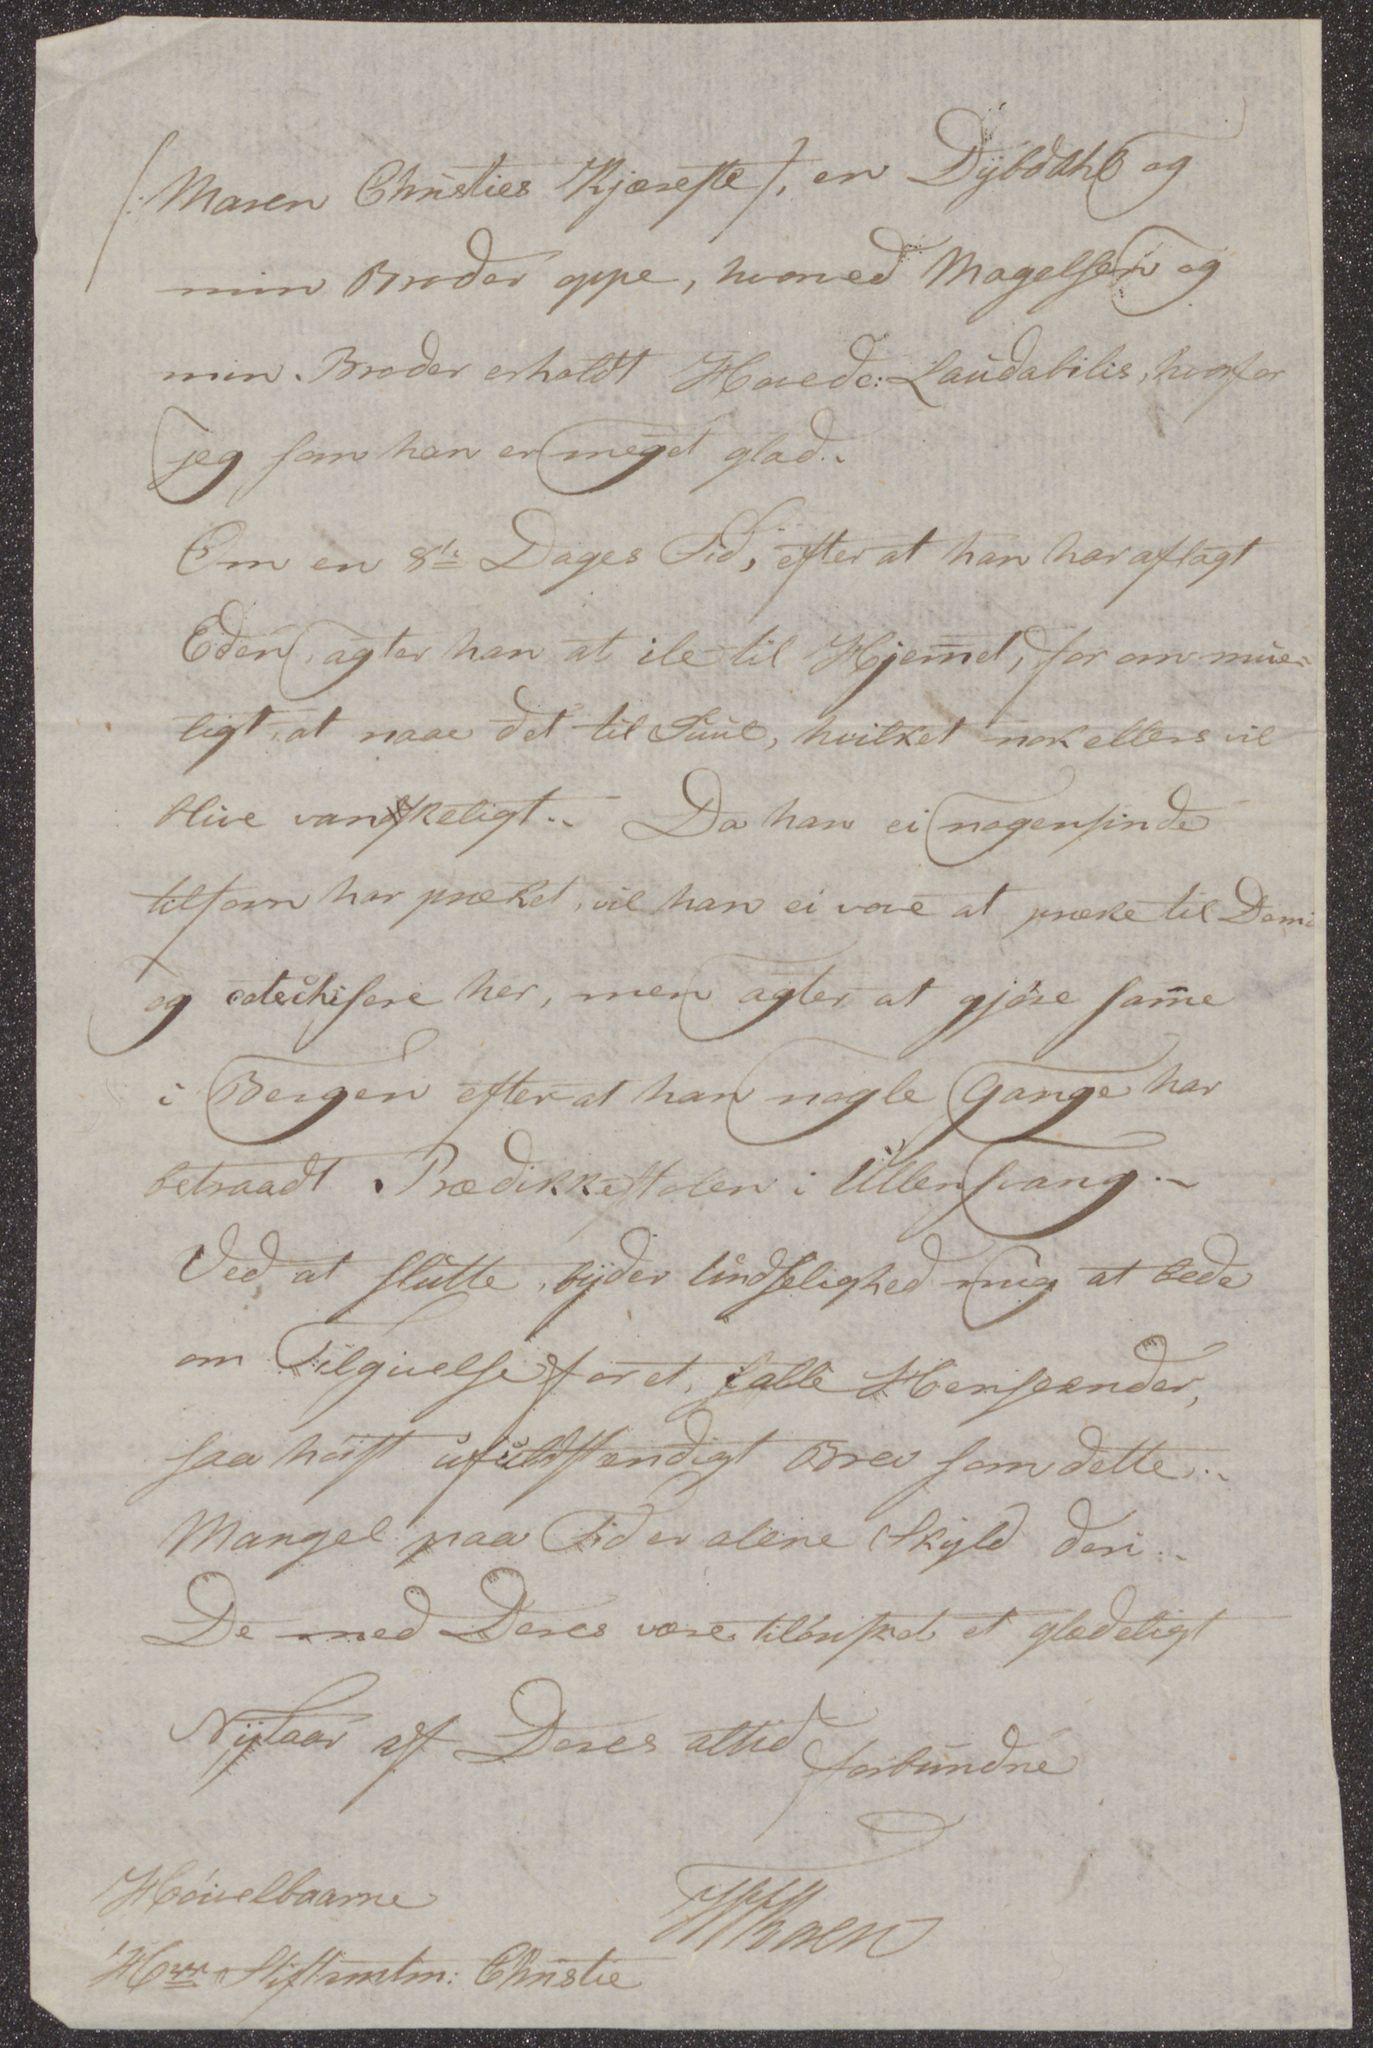 /: Maren Christies Kjæreste /, en Dybdahl og
min Broder oppe, hvoraf Magelsen og
min Broder erholdt Hoved: Laudabilis, hvorfor
jeg som han er meget glad.
Om en 8te Dages Tid, efterat han har aflagt
Eden, agter han at ile til Hjemmet, for om mue-
ligt, at naae det til Juul, hvilket nok ellers vil
blive vanskeligt. Da han ei nogensinde
tilforn har præket, vil han ei vove at præke til Dimis
og catechisere her, men agter at gjöre samme
i Bergen efterat han nogle Gange har
betraadt Prædikkestolen i Ullensvang.
Ved at slutte, byder Undselighed mig at bede
om Tilgivelse for et, i alle Henseender,
saa höist ufuldstændigt Brev som dette.
Mangel paa Tid er alene Skyld deri.
De med Deres være tilönsket et glædeligt
Nytaar af Deres altid forbundne
Höivelbaarne
Hrr Stiftamtm: Christie